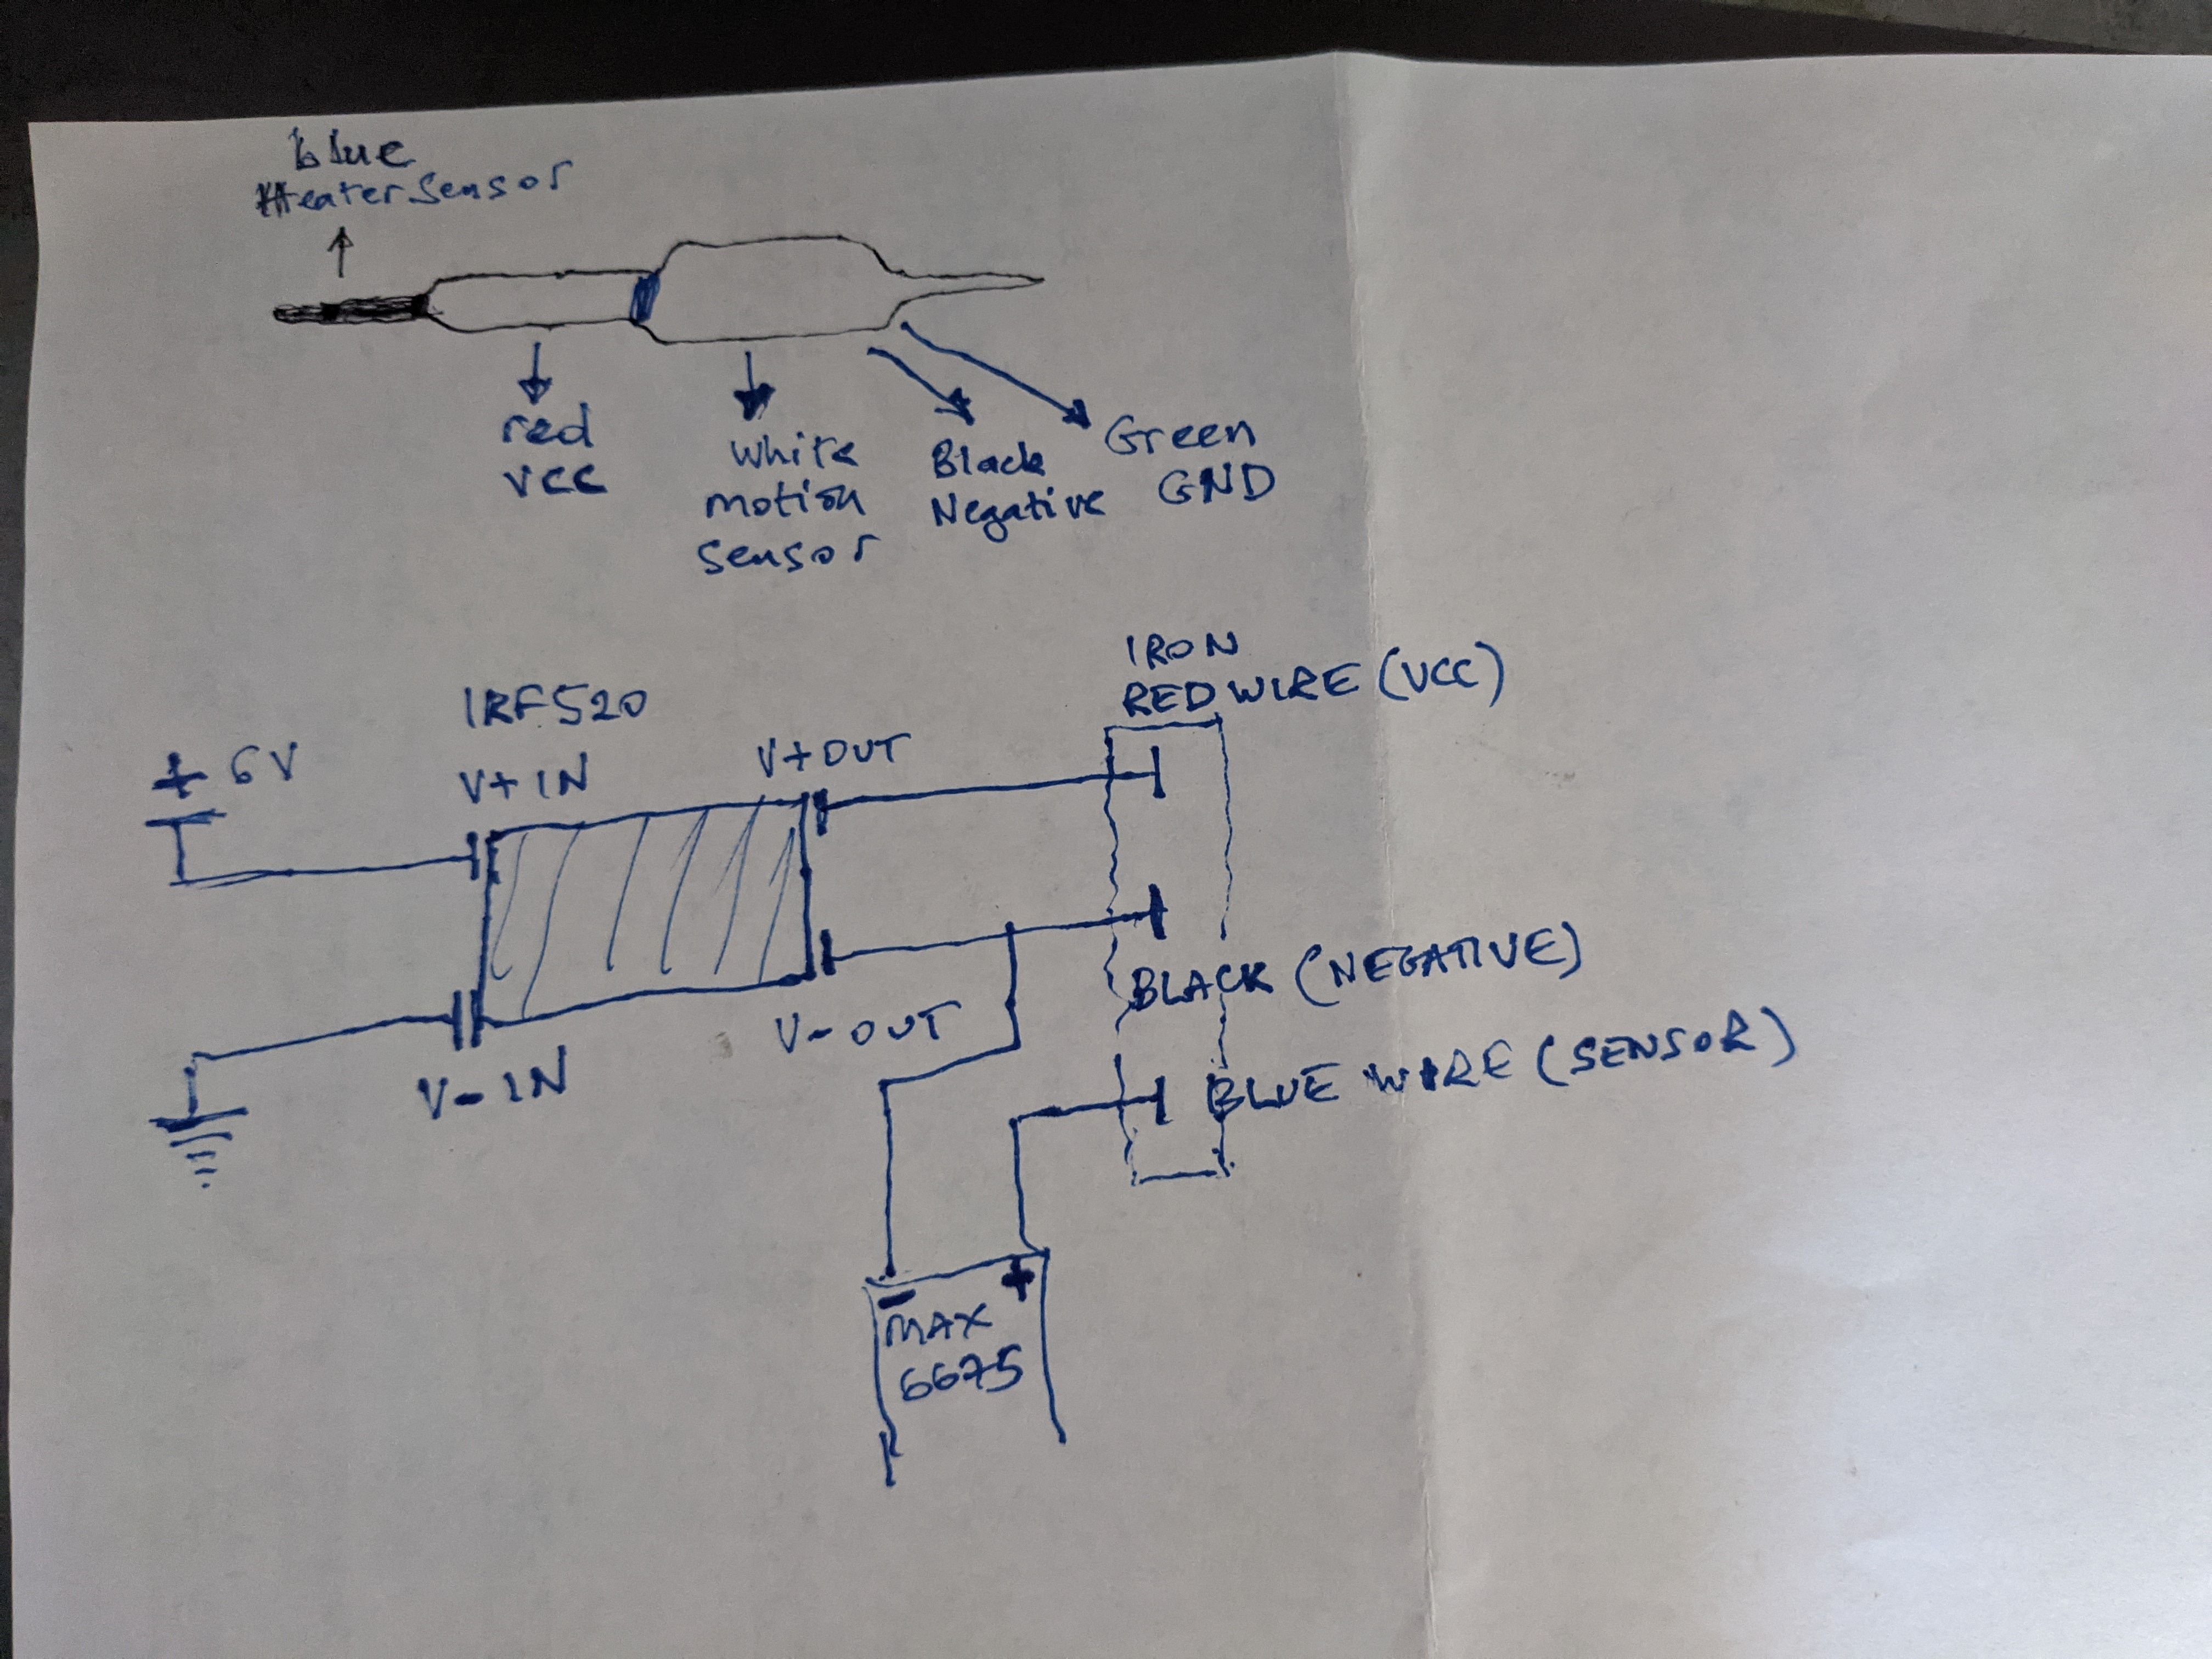 blue
Heater Sensor
red
vcc
white
motion
sensor
Black
Negative
Green
GND
IRON
RED WIRE (VCC)
IRF520
+ 6V
V+ IN
V+OUT
BLACK (NEGATIVE)
V-OUT
V-IN
BLUE WIRE (SENSOR)
- +
MAX
6675